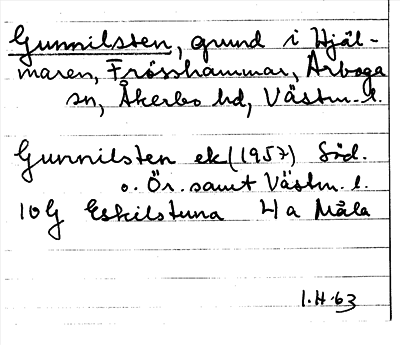 Gunnilsten, grund i Hjäl-
maren, Frösshammar, Arboga
sn, Åkerbo hd, Västm. l.
Gunnilsten ek (1957) Söd.
o. Ör. samt Västm. l.
10G Eskilstuna 4a Måla
I.H.63